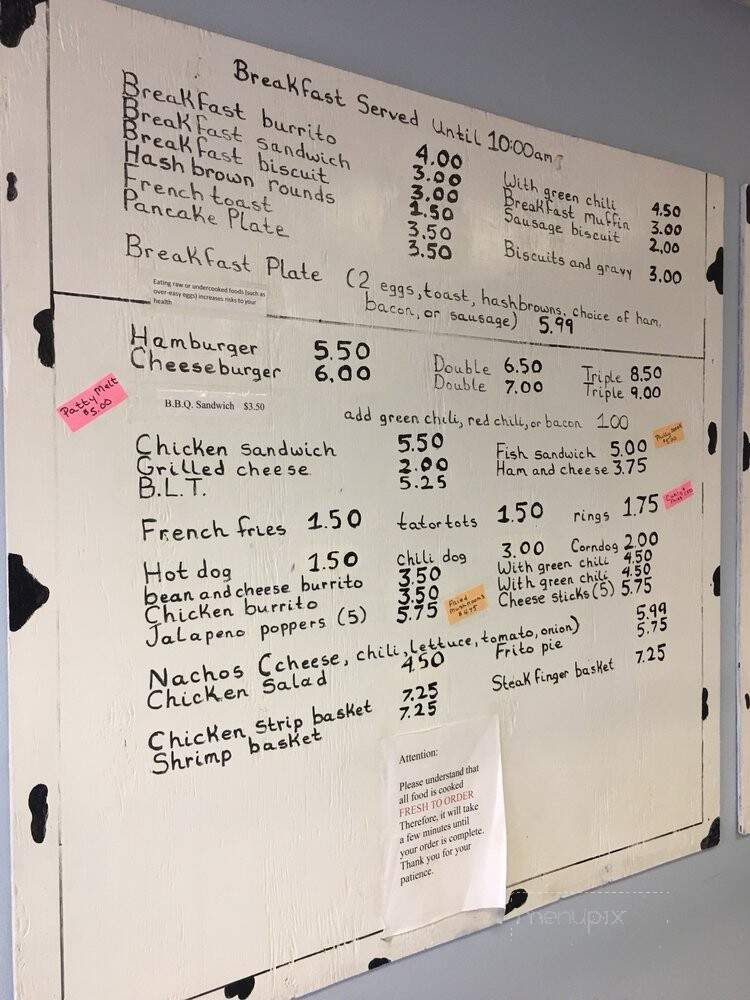 Breakfast Served Until 10:00am
Breakfast burrito 4.00 With green chili 4.50
Breakfast sandwich 3.00 Breakfast muffin 3.00
Breakfast biscuit 3.00 Sausage biscuit 2,00
Hash brown rounds 1.50
French toast 3.50 Biscuits and gravy 3.00
Pancake Plate 3.50
Breakfast Plate (2 eggs, toast, hashbrowns, choice of ham,
bacon, or sausage) 5.99
Eating raw or undercooked foods (such as
over-easy eggs) increases risks to your
health
Hamburger 5.50 Double 6.50 Triple 8.50
Cheeseburger 6,00 Double 7.00 Triple 9.00
Patty Melt
$5.00
B.B.Q. Sandwich $3.50
add green chili, red chili, or bacon 1.00
Chicken sandwich 5.50 Fish sandwich 5.00
Grilled cheese 2.00 Ham and cheese 3.75
B.L.T. 5.25
French fries 1.50 tator tots 1.50 rings 1.75
Hot dog 1.50 chili dog 3.00 Corndog 2.00
bean and cheese burrito 3.50 With green chili 4.50
Chicken burrito 3.50 With green chili 4.50
Jalapeno poppers (5) 5.75 Cheese sticks (5) 5.75
Fried
mushrooms
Nachos (cheese, chili, lettuce, tomato, onion) 5.99
Chicken Salad 4.50 Frito pie 5.75
Chicken Strip basket 7.25 Steak finger basket 7.25
Shrimp basket 7.25
Attention:
Please understand that
all food is cooked
FRESH TO ORDER
Therefore, it will take
a few minutes until
your order is complete.
Thank you for your
patience.
menupix